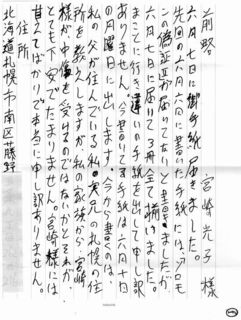 前略　宮崎光子　様
六月七日に御手紙届きました。
先回の六月六日に書いた手紙には、ゾロモ
ンの偽証が届いてないと書きましたが
六月七日に届いて3冊全て揃いました。
まことに行き違いの手紙を出して申し訳
ありません。今書いてる手紙は六月十日
の月曜日に出します。今から書くのは、
私の父が住んでいる私の実兄の札幌の住
所を教えしますが、私の家族から宮崎
様が中傷を受けるのではないかとそれが
とても不安でたまりません。宮崎様には
甘えてばかりで本当に申し訳ありません。
住所
北海道札幌市南区藤野